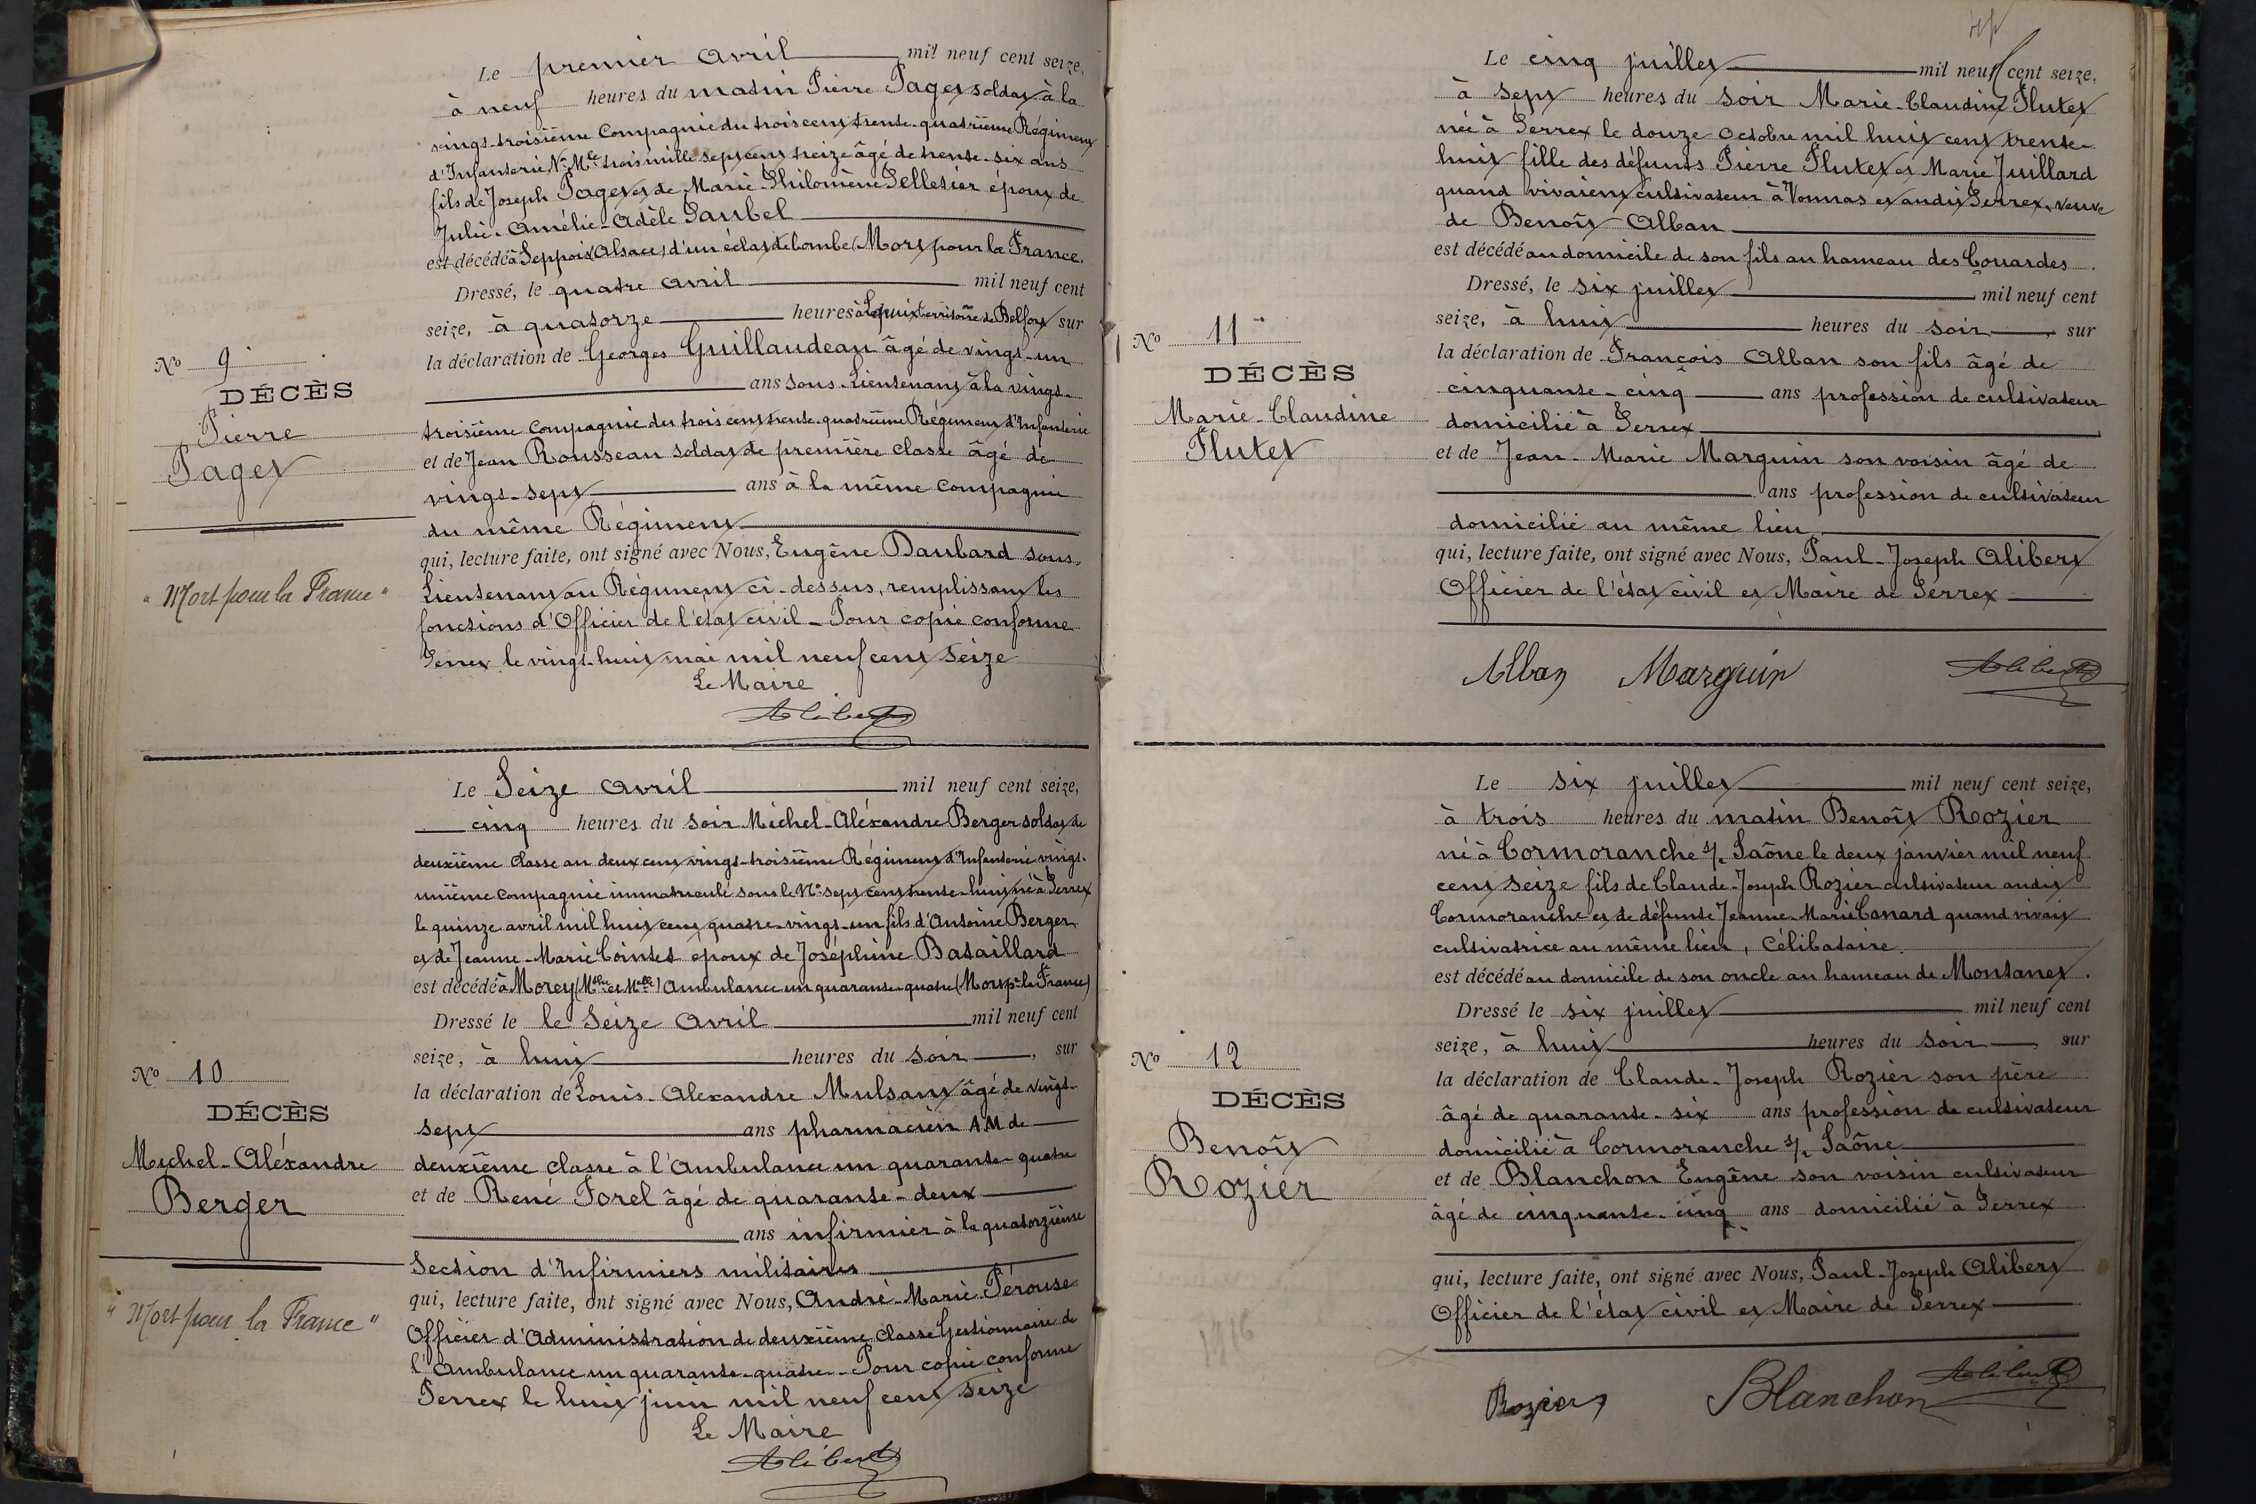 Le premier avril mil neuf cent seize,
à neuf heures du matin Pierre Paget soldat à la
vingt-troisième Compagnie du trois cent trente-quatrième Régiment
d'Infanterie, No Mle trois mille sept cent treize âgé de trente-six ans
fils de Joseph Paget et de Marie-Philomène Pelletier époux de
Julie-Amélie-Adèle Paubel
est décédé à Seppois (Alsace) d'un éclat de bombe (Mort pour la France.
Dressé, le quatre avril mil neuf cent
seize, à quatorze heures à Lepuix territoire de Belfort sur
la déclaration de Georges Guillaudeau âgé de vingt-un
ans Sous-Lieutenant à la vingt-
troisième Compagnie du trois cent trente-quatrième Régiment d'Infanterie
et de Jean Rousseau soldat de première classe âgé de
vingt-sept ans à la même Compagnie
du même Régiment
qui, lecture faite, ont signé avec Nous, Eugène Daubard sous-
Lieutenant au Régiment ci-dessus, remplissant les
fonctions d'Officier de l'état civil - Pour copie conforme
Perrex le vingt-huit mai mil neuf cent seize
Le Maire
Alibert
No 9
DÉCÈS
Pierre
Paget
"Mort pour la France"
Le Seize avril mil neuf cent seize,
cinq heures du soir Michel-Aléxandre Berger soldat de
deuxième classe au deux cent vingt-troisième Régiment d'Infanterie vingt-
unième compagnie immatriculé sous le No sept cent trente-huit né à Perrex
le quinze avril mil huit cent quatre-vingt-un fils d'Antoine Berger
et de Jeanne-Marie Cointet epoux de Joséphine Bataillard
est décédé à Morey (Mthe et Mlle) Ambulance un quarante-quatre (Mort pr la France)
Dressé le le Seize Avril mil neuf cent
seize, à huit heures du soir, sur
la déclaration de Louis-Alexandre Mulsant âgé de vingt-
sept ans pharmacien A.M de
deuxième classe à l'Ambulance un quarante-quatre
et de René Forel âgé de quarante-deux
ans infirmier à la quatorzième
Section d'Infirmiers militaires
qui, lecture faite, ont signé avec Nous, André-Marie Pérouse
Officier d'Administration de deuxième classe Gestionnaire de
l'Ambulance un quarante-quatre - Pour copie conforme
Perrex le huit juin mil neuf cent seize
Le Maire
Alibert
No 10
DÉCÈS
Michel-Aléxandre
Berger
"Mort pour la France"
Le cinq juillet mil neuf cent seize,
à sept heures du soir Marie-Claudine Flutet
née à Perrex le douze octobre mil huit cent trente-
huit fille des défunts Pierre Flutet et Marie Juillard
quand vivaient cultivateur à Vonnas et audit Perrex, veuve
de Benoît Alban
est décédé au domicile de son fils au hameau des Couardes.
Dressé, le six juillet mil neuf cent
seize, à huit heures du soir, sur
la déclaration de François Alban son fils âgé de
cinquante-cinq ans profession de cultivateur
domicilié à Perrex
et de Jean-Marie Marguin son voisin âgé de
ans profession de cultivateur
domicilié au même lieu
qui, lecture faite, ont signé avec Nous, Paul-Joseph Alibert
Officier de l'état civil et Maire de Perrex
Alban Marguin Alibert
No 11
DÉCÈS
Marie-Claudine
Flutet
Le six juillet mil neuf cent seize,
à trois heures du matin Benoît Rozier
né à Cormoranche s/ Saône le deux janvier mil neuf
cent seize fils de Claude-Joseph Rozier cultivateur audit
Cormoranche et de défunte Jeanne-Marie Canard quand vivait
cultivatrice au même lieu, Célibataire
est décédé au domicile de son oncle au hameau de Montanet.
Dressé le six juillet mil neuf cent
seize, à huit heures du soir, sur
la déclaration de Claude-Joseph Rozier son père
âgé de quarante-six ans profession de cultivateur
domicilié à Cormoranche s/ Saône
et de Blanchon Eugène son voisin cultivateur
âgé de cinquante-cinq ans domicilié à Perrex
qui, lecture faite, ont signé avec Nous, Paul-Joseph Alibert
Officier de l'état civil et Maire de Perrex
Rozier Blanchon Alibert
No 12
DÉCÈS
Benoît
Rozier
1916